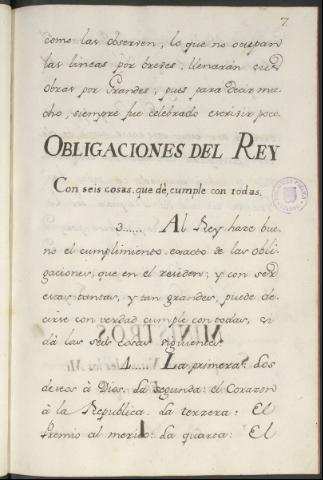 7
como las observen, lo que no ocupan
las lineas por breves, llenarán sus
obras por Grandes; pues para decir mu-
cho, siempre fue celebrado escrivir poco.
OBLIGACIONES DEL REY
Con seis cosas, que dè, cumple con todas.
3...... Al Rey haze bue-
no el cumplimiento exacto de las obli-
gaciones, que en èl residen; y con ser
estas tantas, y tan grandes, puede de-
cirse con verdad cumple con todas, si
dà las seis cosas siguientes.
4...... La primera: Los
deseos à Dios. La Segunda: el Corazon
à la Republica. La terzera: El
Premio al merito: La quarta: El